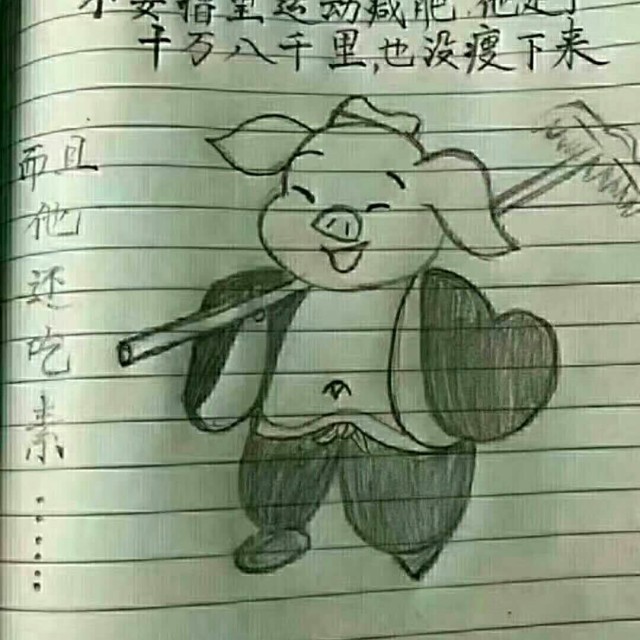 不要指望运动减肥,他走了
千万八千里,也没瘦下来
而且他还吃素……